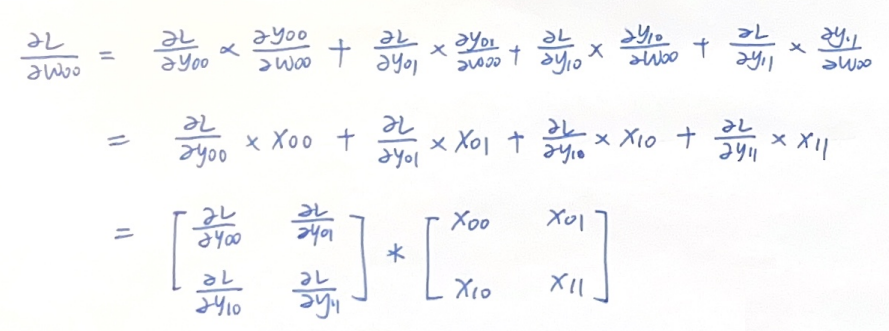 ∂L/∂w00 = ∂L/∂y00 × ∂y00/∂w00 + ∂L/∂y01 × ∂y01/∂w00 + ∂L/∂y10 × ∂y10/∂w00 + ∂L/∂y11 × ∂y11/∂w00
= ∂L/∂y00 × X00 + ∂L/∂y01 × X01 + ∂L/∂y10 × X10 + ∂L/∂y11 × X11
= [ ∂L/∂y00 ∂L/∂y01 ; ∂L/∂y10 ∂L/∂y11 ] * [ X00 X01 ; X10 X11 ]